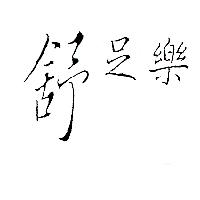 舒足樂